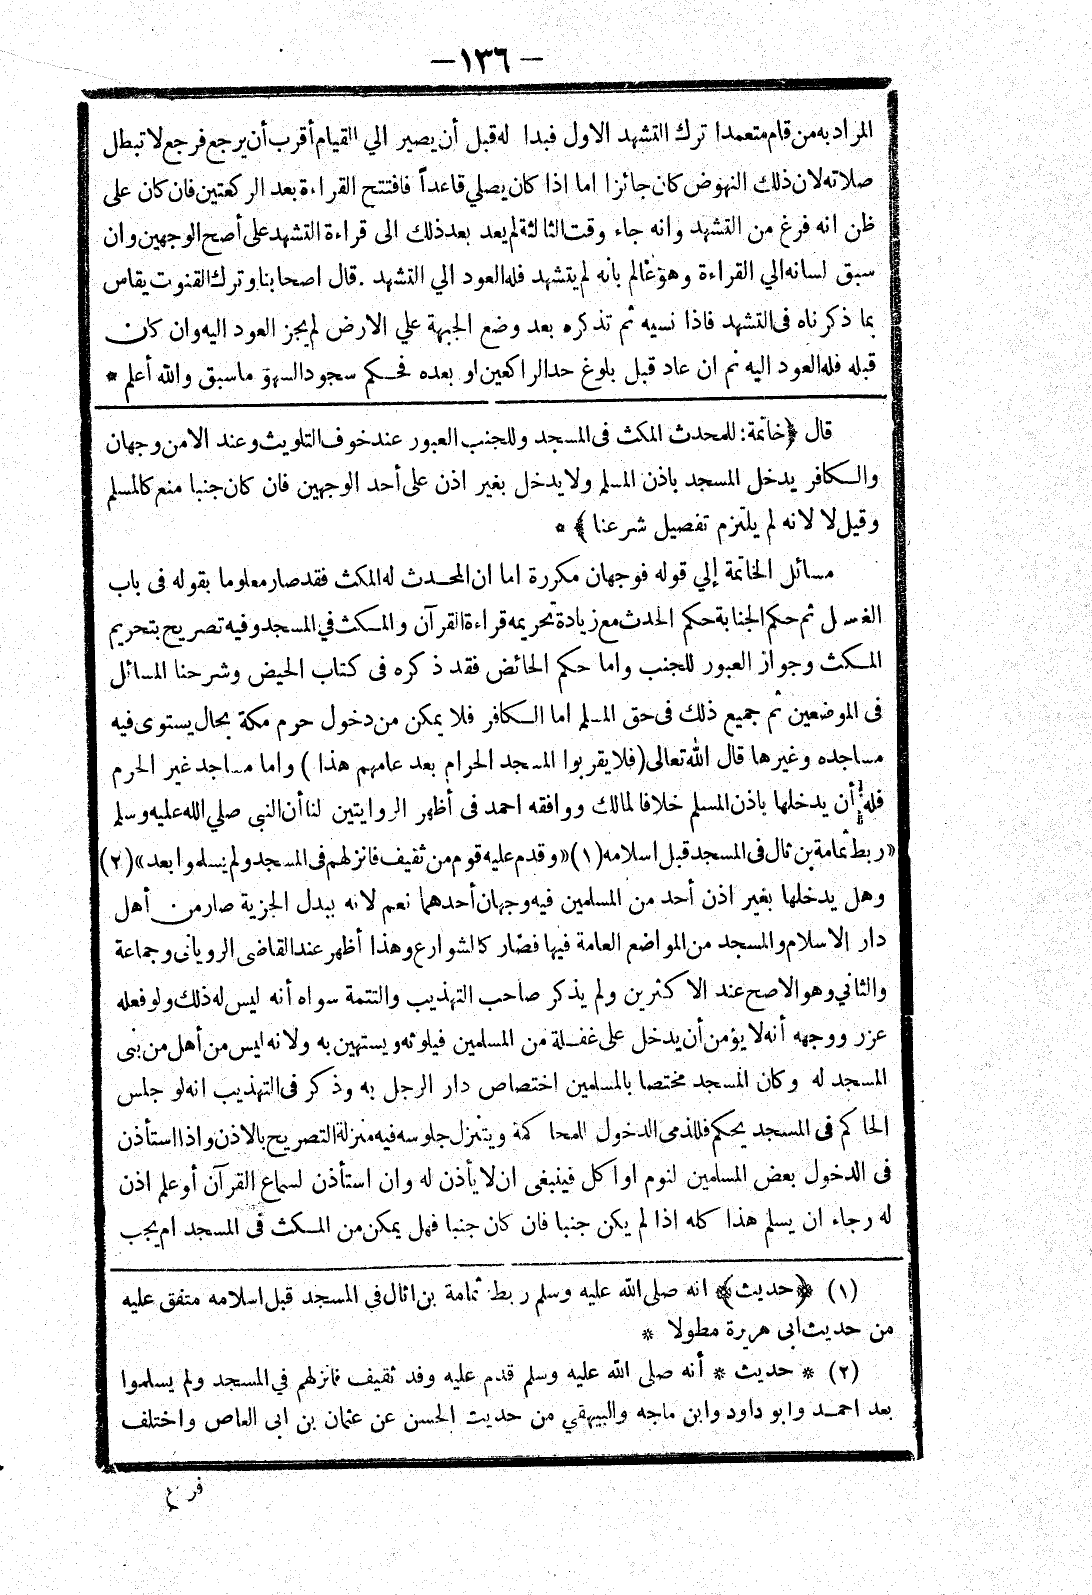 — ١٣٦ —
المراد به من قام متعمدا ترك التشهد الاول فبدا له قبل أن يصير الي القيام أقرب أن يرجع فرجع لا تبطل
صلاته لان ذلك النهوض كان جائزا اما اذا كان يصلي قاعداً فافتتح القراءة بعد الركعتين فان كان على
ظن انه فرغ من التشهد وانه جاء وقت الثالثة لم يعد بعد ذلك الى قراءة التشهد على أصح الوجهين وان
سبق لسانه الي القراءة وهو عالم بانه لم يتشهد فله العود الي التشهد . قال اصحابنا وترك القنوت يقاس
بما ذكرناه فى التشهد فاذا نسيه ثم تذكره بعد وضع الجبهة علي الارض لم يجز العود اليه وان كان
قبله فله العود اليه ثم ان عاد قبل بلوغ حد الراكعين او بعده فحكم سجود السهو ما سبق والله أعلم *
قال ﴿خاتمة: للمحدث المكث فى المسجد وللجنب العبور عند خوف التلويث وعند الامن وجهان
والكافر يدخل المسجد باذن المسلم ولا يدخل بغير اذن على أحد الوجهين فان كان جنبا منع كالمسلم
وقيل لا لانه لم يلتزم تفصيل شرعنا ﴾ *
مسائل الخاتمة إلي قوله فوجهان مكررة اما ان المحدث له المكث فقد صار معلوما بقوله فى باب
الغسل ثم حكم الجنابة حكم الحدث مع زيادة تحريمه قراءة القرآن والمكث في المسجد وفيه تصريح بتحريم
المكث وجواز العبور للجنب واما حكم الحائض فقد ذكره فى كتاب الحيض وشرحنا المسائل
فى الموضعين ثم جميع ذلك فى حق المسلم اما الكافر فلا يمكن من دخول حرم مكة بحال يستوى فيه
مساجده وغيرها قال الله تعالى (فلا يقربوا المسجد الحرام بعد عامهم هذا ) واما مساجد غير الحرم
فله أن يدخلها باذن المسلم خلافا لمالك ووافقه احمد فى أظهر الروايتين لنا أن النبى صلي الله عليه وسلم
«ربط ثمامة بن ثال فى المسجد قبل اسلامه (١) «وقدم عليه قوم من ثقيف فانزلهم فى المسجد ولم يسلموا بعد» (٢)
وهل يدخلها بغير اذن أحد من المسلمين فيه وجهان أحدهما نعم لانه ببدل الجزية صار من أهل
دار الاسلام والمسجد من المواضع العامة فيها فصار كالشوارع وهذا أظهر عند القاضى الرويانى وجماعة
والثاني وهو الاصح عند الاكثرين ولم يذكر صاحب التهذيب والتتمة سواه أنه ليس له ذلك ولو فعله
عزر ووجهه أنه لا يؤمن أن يدخل على غفلة من المسلمين فيلوثه ويستهين به ولانه ليس من أهل من بنى
المسجد له وكان المسجد مختصا بالمسلمين اختصاص دار الرجل به وذكر فى التهذيب انه لو جلس
الحاكم فى المسجد يحكم فللذمى الدخول للمحاكمة ويتنزل جلوسه فيه منزلة التصريح بالاذن واذا استأذن
فى الدخول بعض المسلمين لنوم او اكل فينبغى ان لا يأذن له وان استأذن لسماع القرآن أو علم اذن
له رجاء ان يسلم هذا كله اذا لم يكن جنبا فان كان جنبا فهل يمكن من المكث فى المسجد ام يجب
(١) ﴿حديث﴾ انه صلى الله عليه وسلم ربط ثمامة بن اثال في المسجد قبل اسلامه متفق عليه
من حديث ابى هريرة مطولا *
(٢) * حديث * أنه صلى الله عليه وسلم قدم عليه وفد ثقيف فانزلهم في المسجد ولم يسلموا
بعد احمد وابو داود وابن ماجه والبيهقي من حديث الحسن عن عثمان بن ابى العاص واختلف
فرع